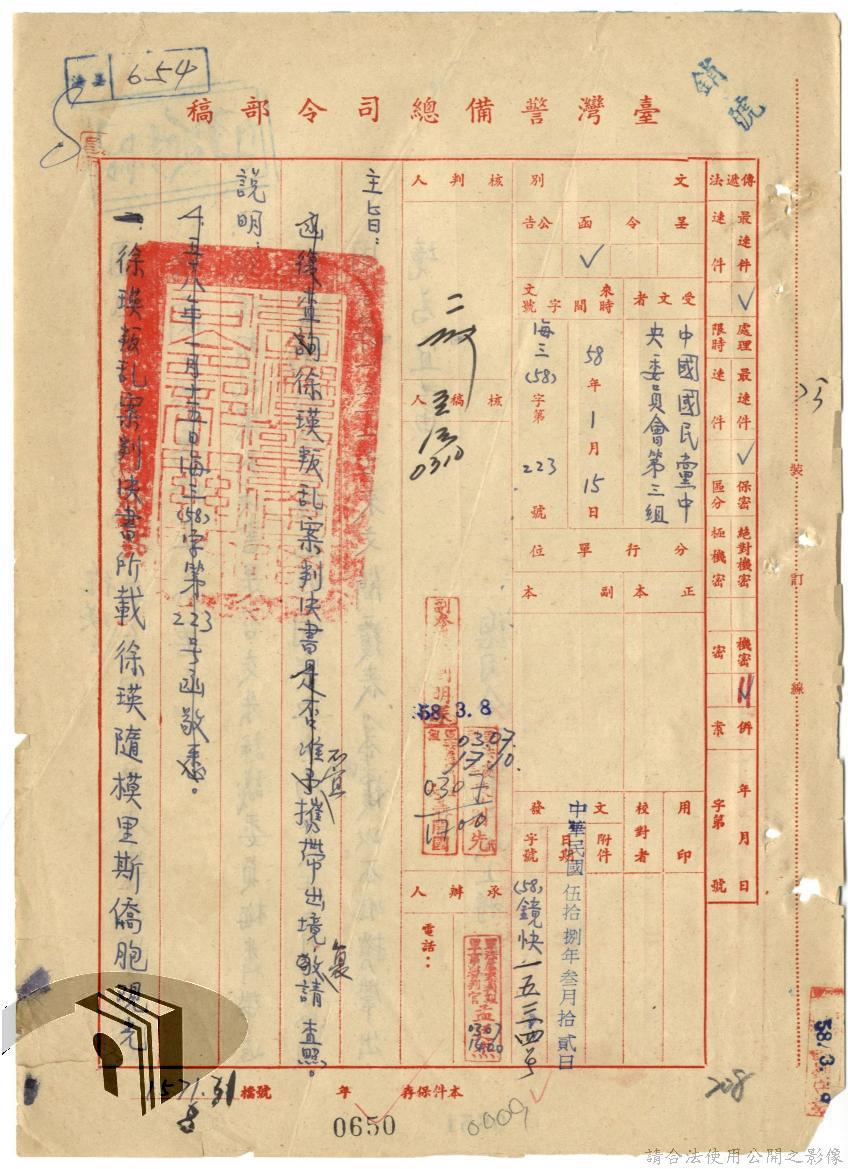 654
銷號
臺灣警備總司令部稿
傳遞法
最速件
速件
處理時限
最速件
速件
保密區分
絕對機密
極機密
機密
密
併
年月日
字第
號
文別
呈
令
函
公告
受文者
中國國民黨中
央委員會第三組
來文
時間
58年1月15日
字號
海三(58)字第223號
分行單位
正本
副本
用印
校對者
發文
附件
日期
中華民國伍拾捌年叁月拾貳日
字號
(58)鏡快一五三四号
核判人
核稿人
0310
58.3.8
承辦人
電話：
主旨：
函復查詢徐瑛叛乱案判决書是否准予攜帶出境,敬請查照。
不宜
復
說明：
五十八年一月十五日海三(58)字第223号函敬悉。
一、徐瑛叛乱案判决書所載徐瑛隨模里斯僑胞
裝
訂
線
58.3.
208
本件保存
年
檔號
1571.31
8
0650
0009
請合法使用公開之影像